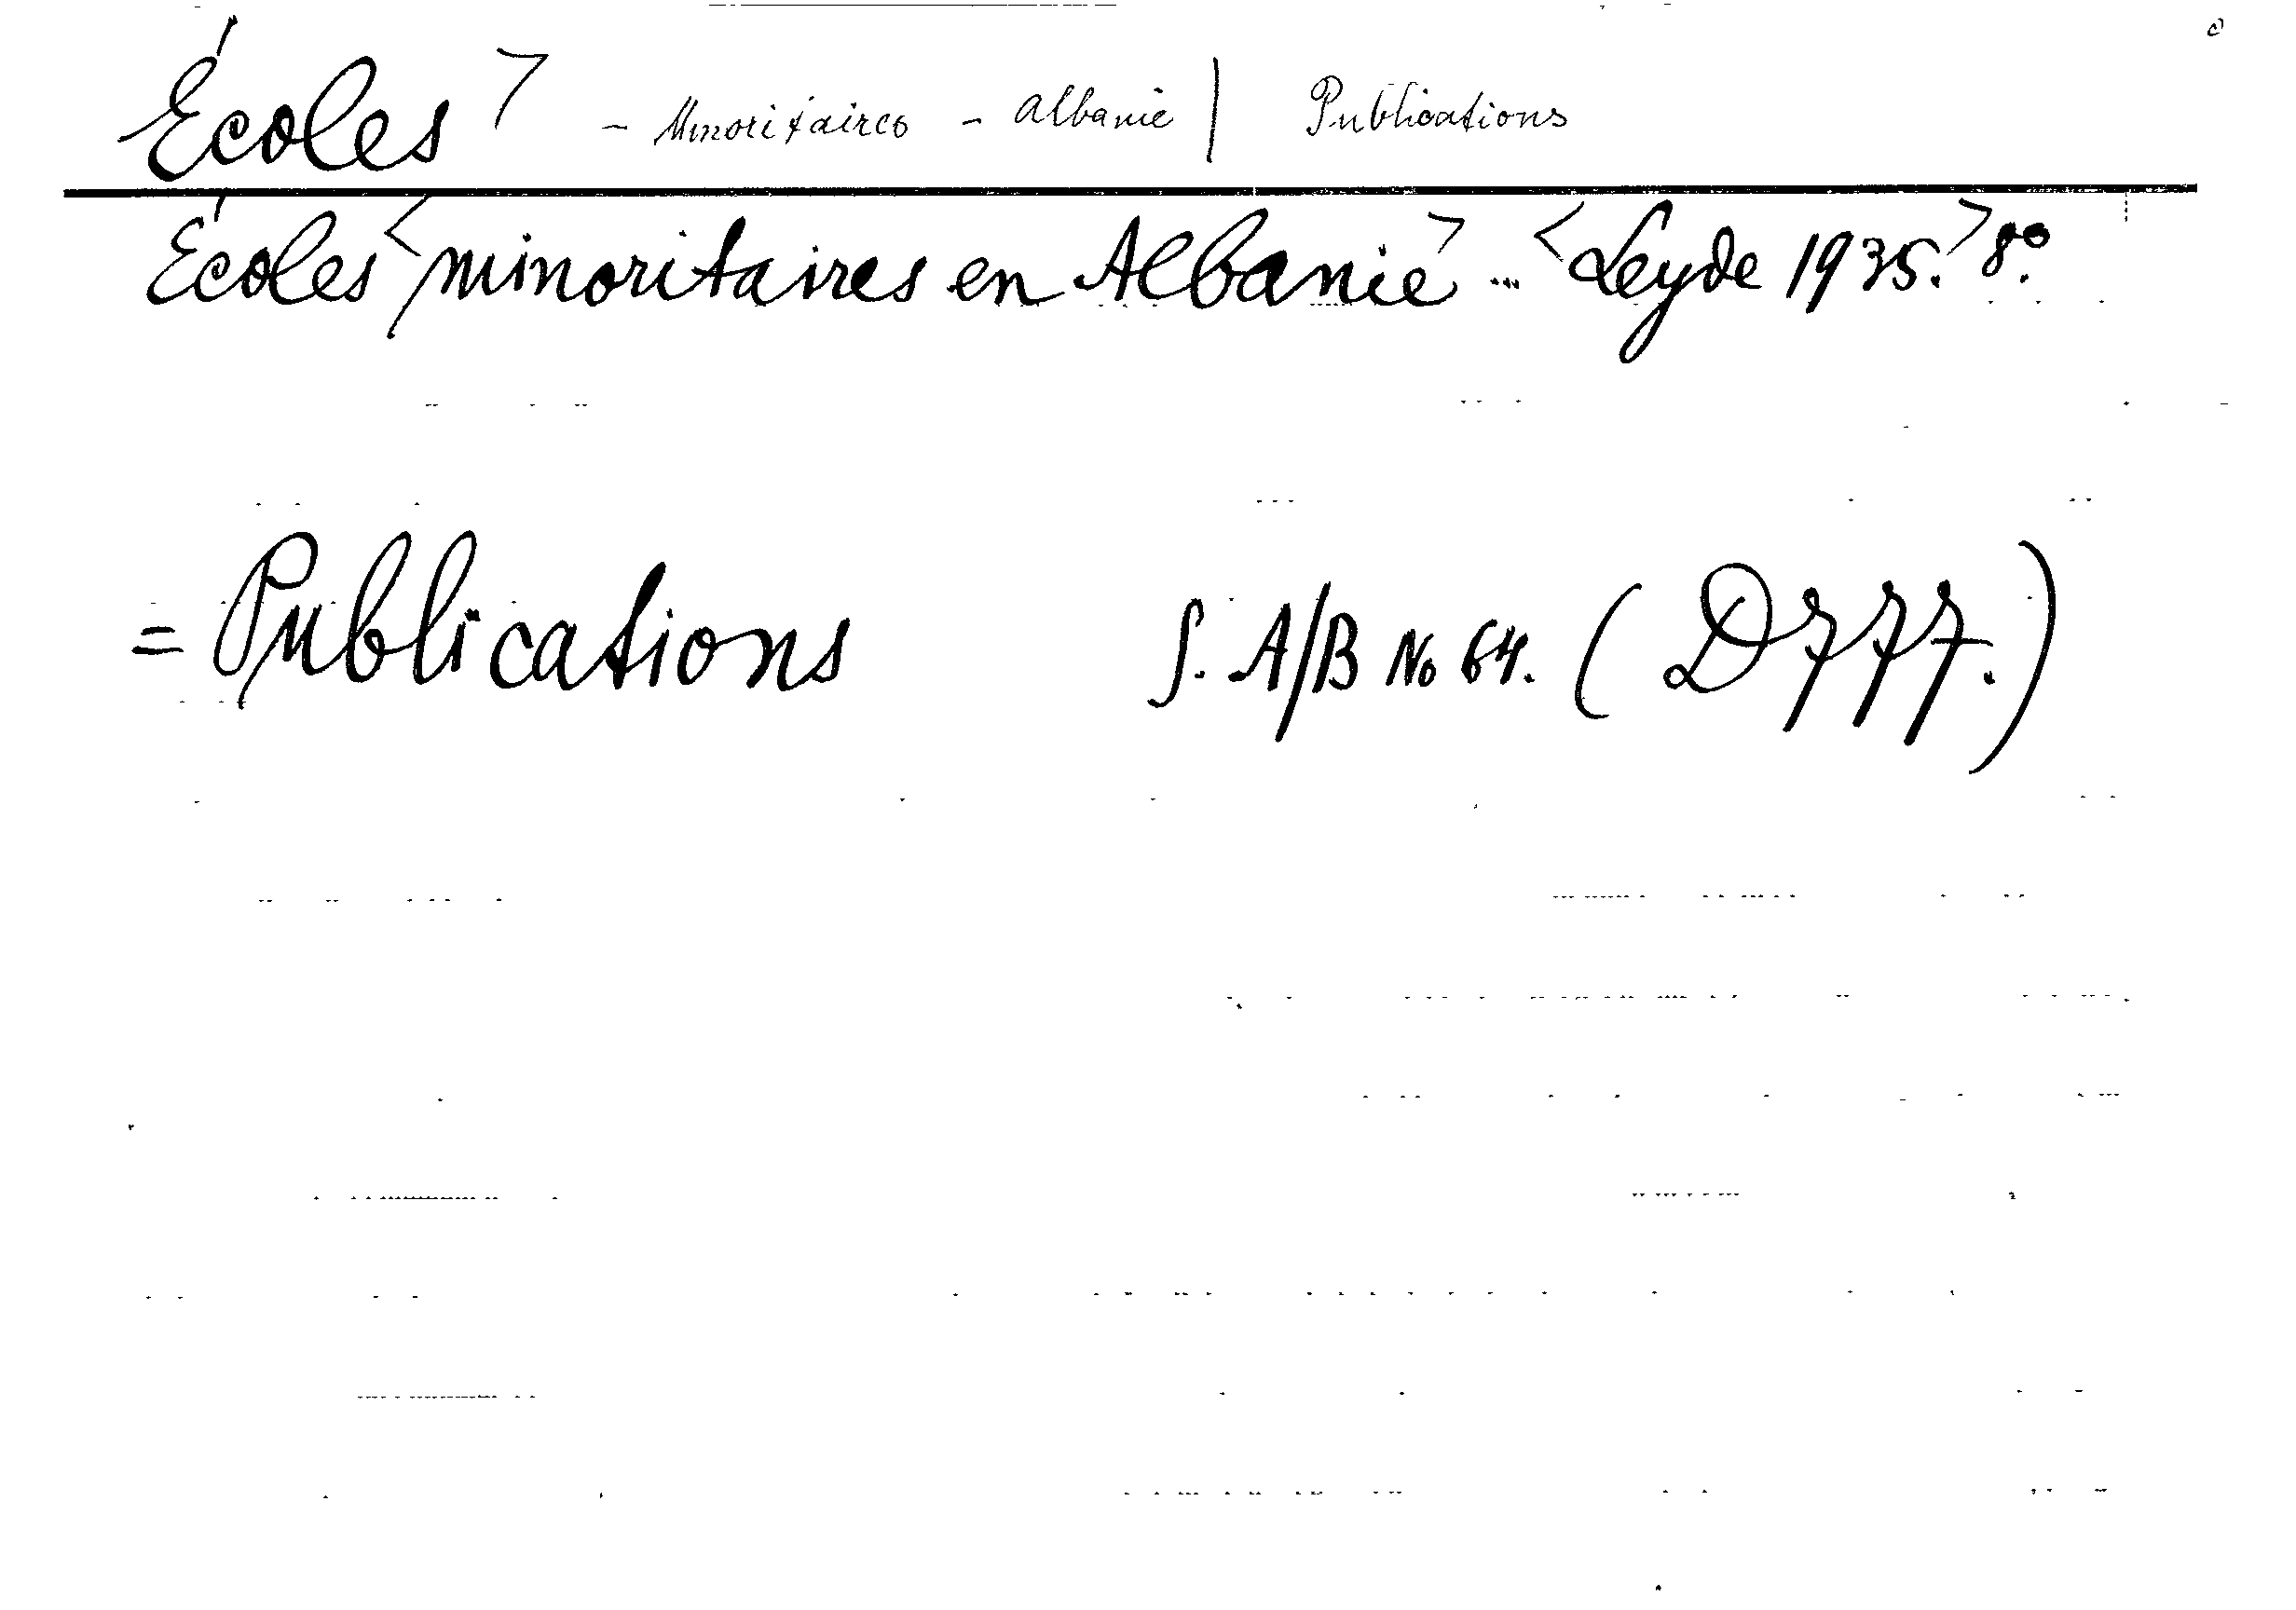 Écoles> - Minoritaires - Albanie | Publications
Écoles <minoritaires en Albanie> ... <Leyde 1935.> 8º.
= Publications S. A/B No 64. (D777.)